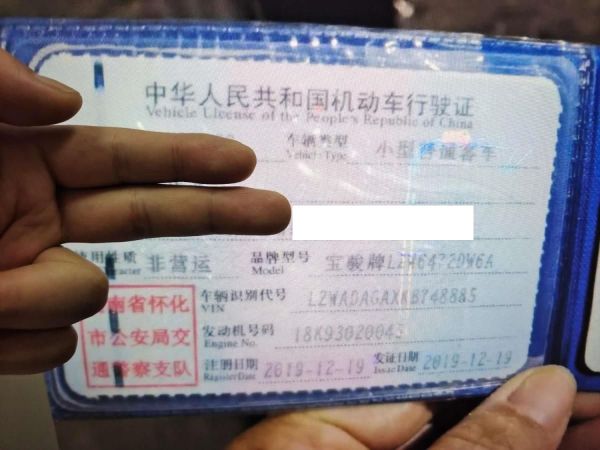 中华人民共和国机动车行驶证
Vehicle License of the People's Republic of China
车辆类型 小型普通客车
Vehicle Type
使用性质 非营运 品牌型号 宝骏牌LZW6472DW6A
Model
车辆识别代号 LZWADAGAXKB748885
VIN
发动机号码 18K93020043
Engine No.
注册日期 2019-12-19 发证日期 2019-12-19
Register Date Issue Date
南省怀化
市公安局交
通警察支队